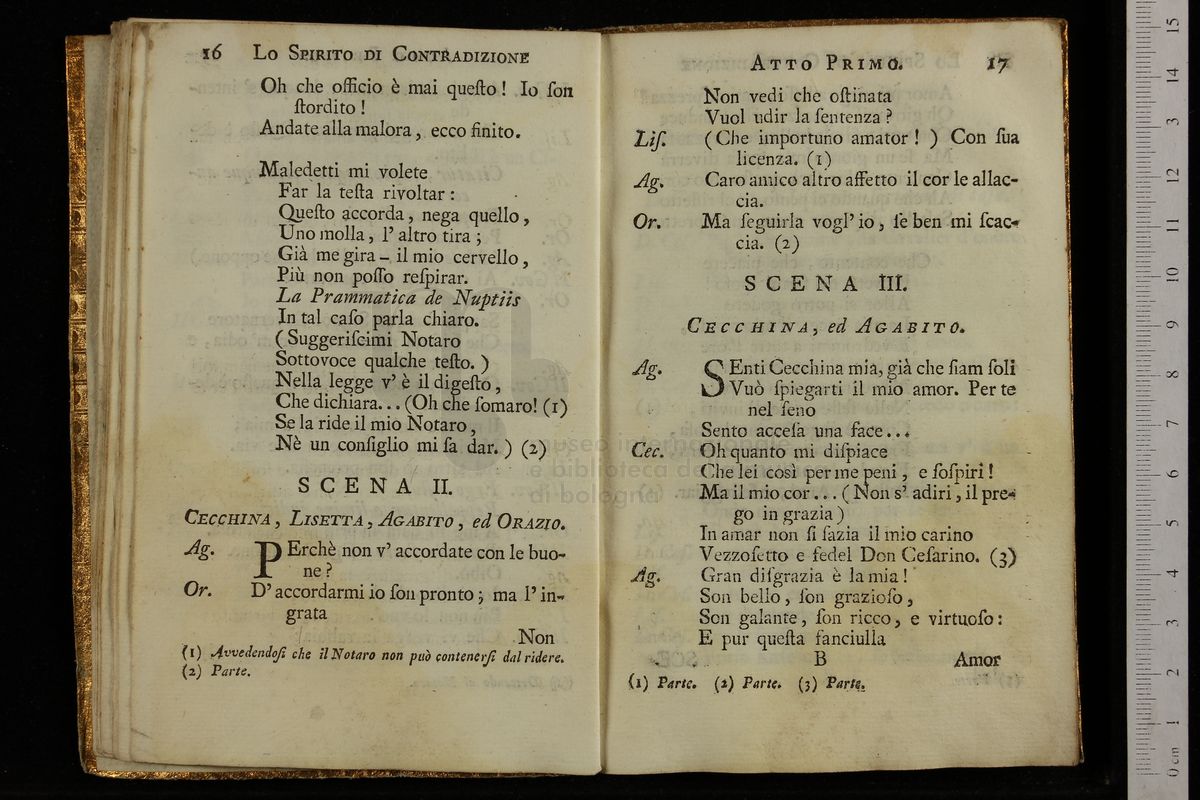 16 Lo Spirito di Contradizione
Oh che officio è mai queſto! Io ſon
ſtordito!
Andate alla malora, ecco finito.
Maledetti mi volete
Far la teſta rivoltar:
Queſto accorda, nega quello,
Uno molla, l' altro tira;
Già me gira - il mio cervello,
Più non poſſo reſpirar.
La Prammatica de Nuptiis
In tal caſo parla chiaro.
(Suggeriſcimi Notaro
Sottovoce qualche teſto.)
Nella legge v' è il digeſto,
Che dichiara... (Oh che ſomaro! (1)
Se la ride il mio Notaro,
Nè un conſiglio mi ſa dar.) (2)
SCENA II.
Cecchina, Lisetta, Agabito, ed Orazio.
Ag. PErchè non v' accordate con le buo-
ne?
Or. D' accordarmi io ſon pronto; ma l' in-
grata
Non
(1) Avvedendoſi che il Notaro non può contenerſi dal ridere.
(2) Parte.
Atto Primo. 17
Non vedi che oſtinata
Vuol udir la ſentenza?
Liſ. (Che importuno amator!) Con ſua
licenza. (1)
Ag. Caro amico altro affetto il cor le allac-
cia.
Or. Ma ſeguirla vogl' io, ſe ben mi ſcac-
cia. (2)
SCENA III.
Cecchina, ed Agabito.
Ag. SEnti Cecchina mia, già che ſiam ſoli
Vuò ſpiegarti il mio amor. Per te
nel ſeno
Sento acceſa una face...
Cec. Oh quanto mi diſpiace
Che lei così per me peni, e ſoſpiri!
Ma il mio cor... (Non s' adiri, il pre-
go in grazia)
In amar non ſi ſazia il mio carino
Vezzoſetto e fedel Don Ceſarino. (3)
Ag. Gran diſgrazia è la mia!
Son bello, ſon grazioſo,
Son galante, ſon ricco, e virtuoſo:
E pur queſta fanciulla
B Amor
(1) Parte. (2) Parte. (3) Parte.
museo internazionale
e biblioteca della musica
di bologna
0 cm 1 2 3 4 5 6 7 8 9 10 11 12 3 14 15